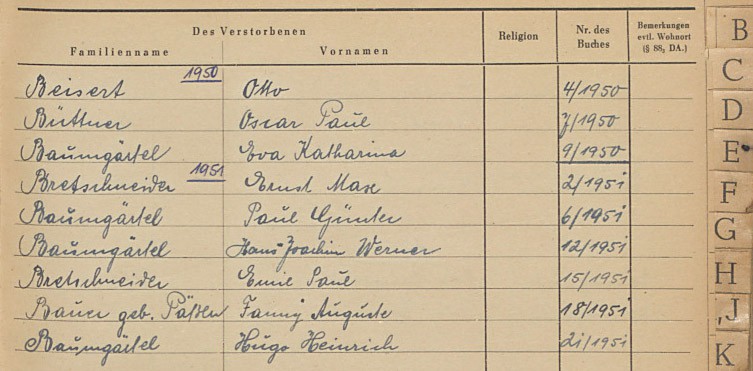 Des Verstorbenen
Familienname Vornamen Religion Nr. des Buches Bemerkungen evtl. Wohnort (§ 88, DA.)
1950
Beisert Otto 4/1950
Büttner Oscar Paul 7/1950
Baumgärtel Eva Katharina 9/1950
1951
Bretschneider Ernst Max 2/1951
Baumgärtel Paul Günter 6/1951
Baumgärtel Hans Joachim Werner 12/1951
Bretschneider Emil Paul 15/1951
Bauer geb. Fanny Auguste 18/1951
Baumgärtel Hugo Heinrich 21/1951
B
C
D
E
F
G
H
J
K